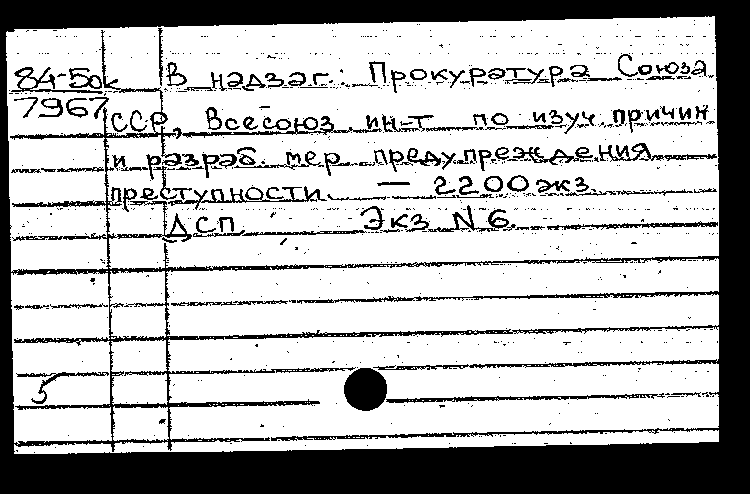 84-5ок В надзаг.: Прокуратура Союза
7967 ССР, Всесоюз. ин-т по изуч. причин
и разраб. мер предупреждения
преступности. — 2200 экз.
ДСП Экз N 6.
5